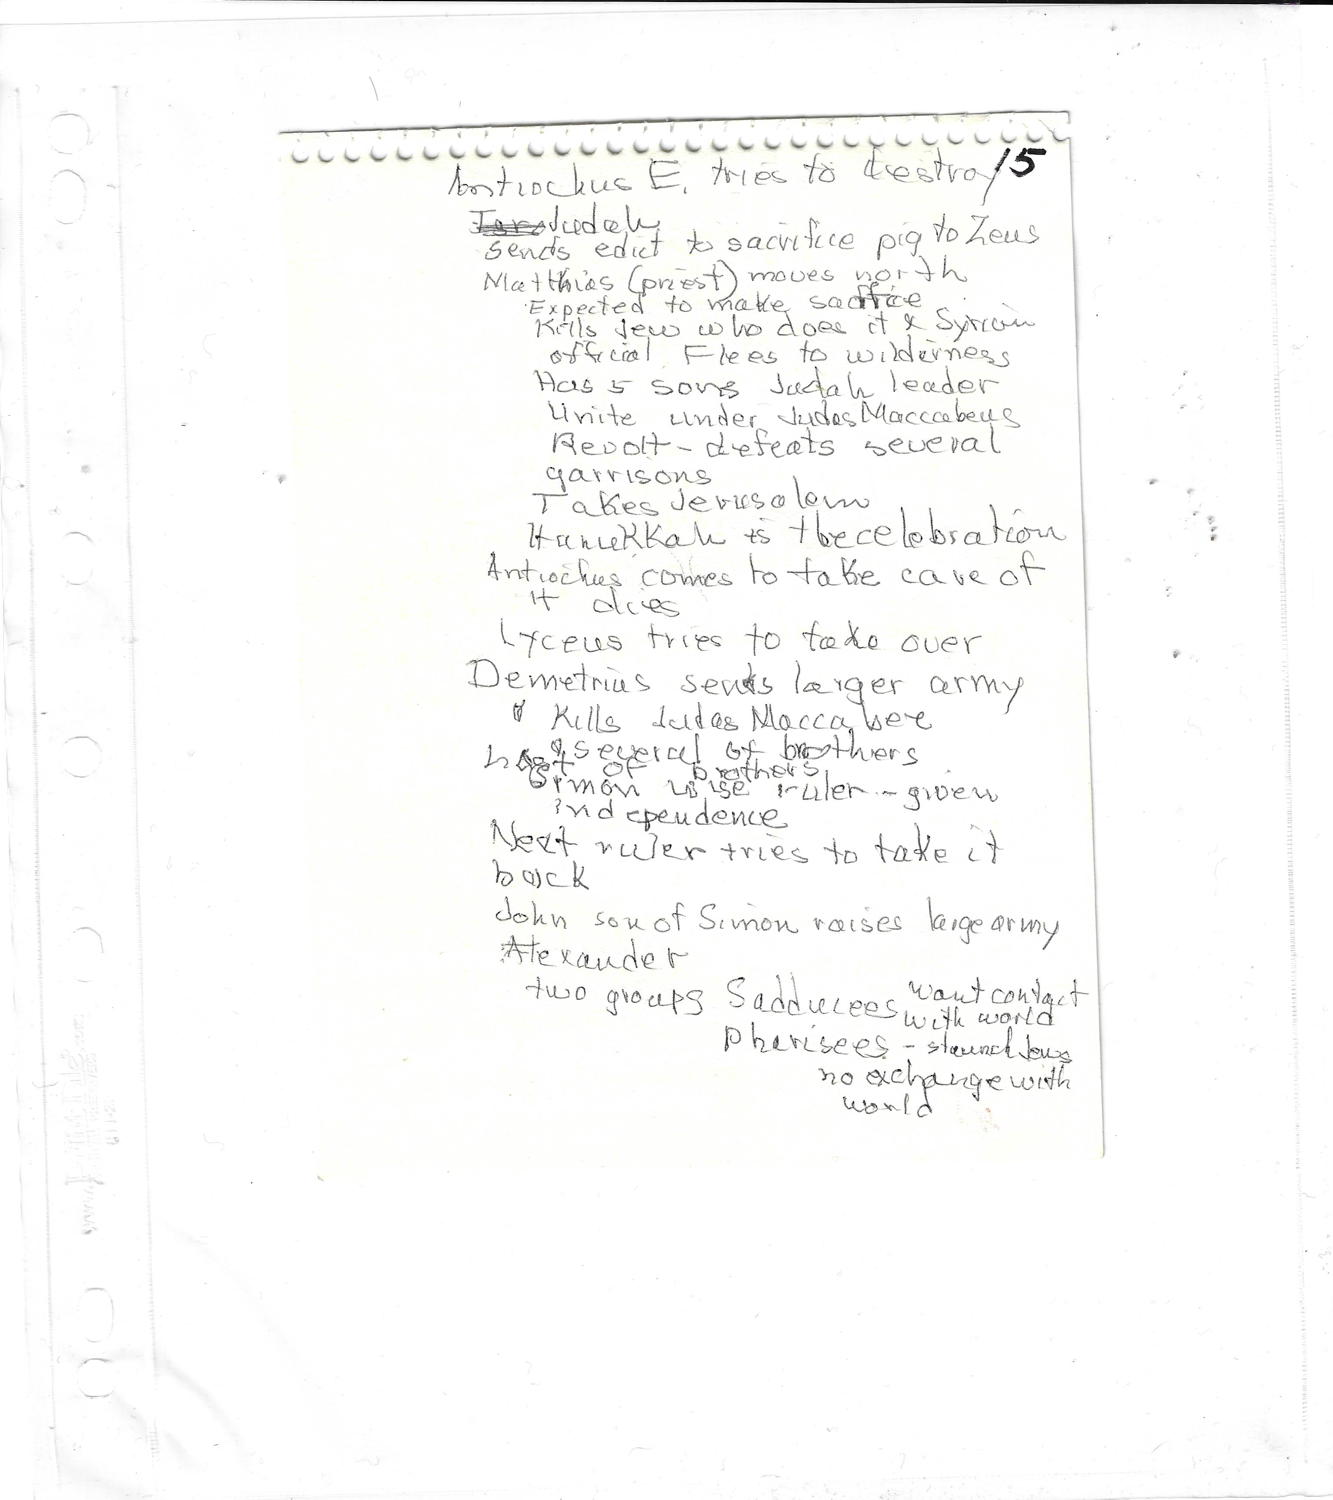 15
Antiochus E. tries to destroy
Judah
sends edict to sacrifice pig to Zeus
Matthias (priest) moves north
Expected to make sacrifice
Kills Jew who does it & Syrian
official Flees to wilderness
Has 5 sons Judah leader
Unite under Judas Maccabeus
Revolt - defeats several
garrisons
Takes Jerusalem
Hanukkah is the celebration
Antiochus comes to take care of
it dies
Lyceus tries to take over
Demetrius sends larger army
Kills Judas Maccabee
& several of brothers
last of brothers
Simon wise ruler - given
independence
Next ruler tries to take it
back
John son of Simon raises large army
Alexander
two groups Sadducees want contact
with world
Pharisees - staunch Jews
no exchange with
world